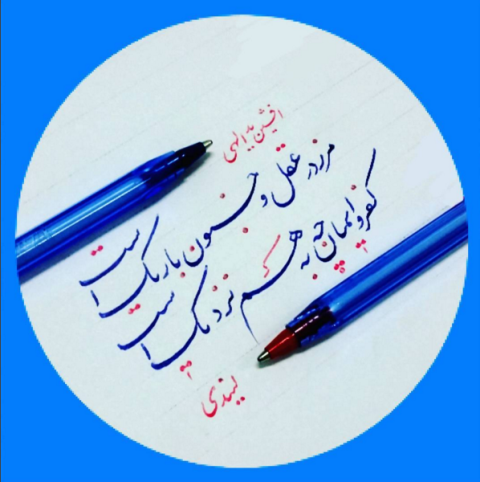 افشین یداللهی
مرز در عقل و جنون باریک است
کفر و ایمان چه به هم نزدیک است